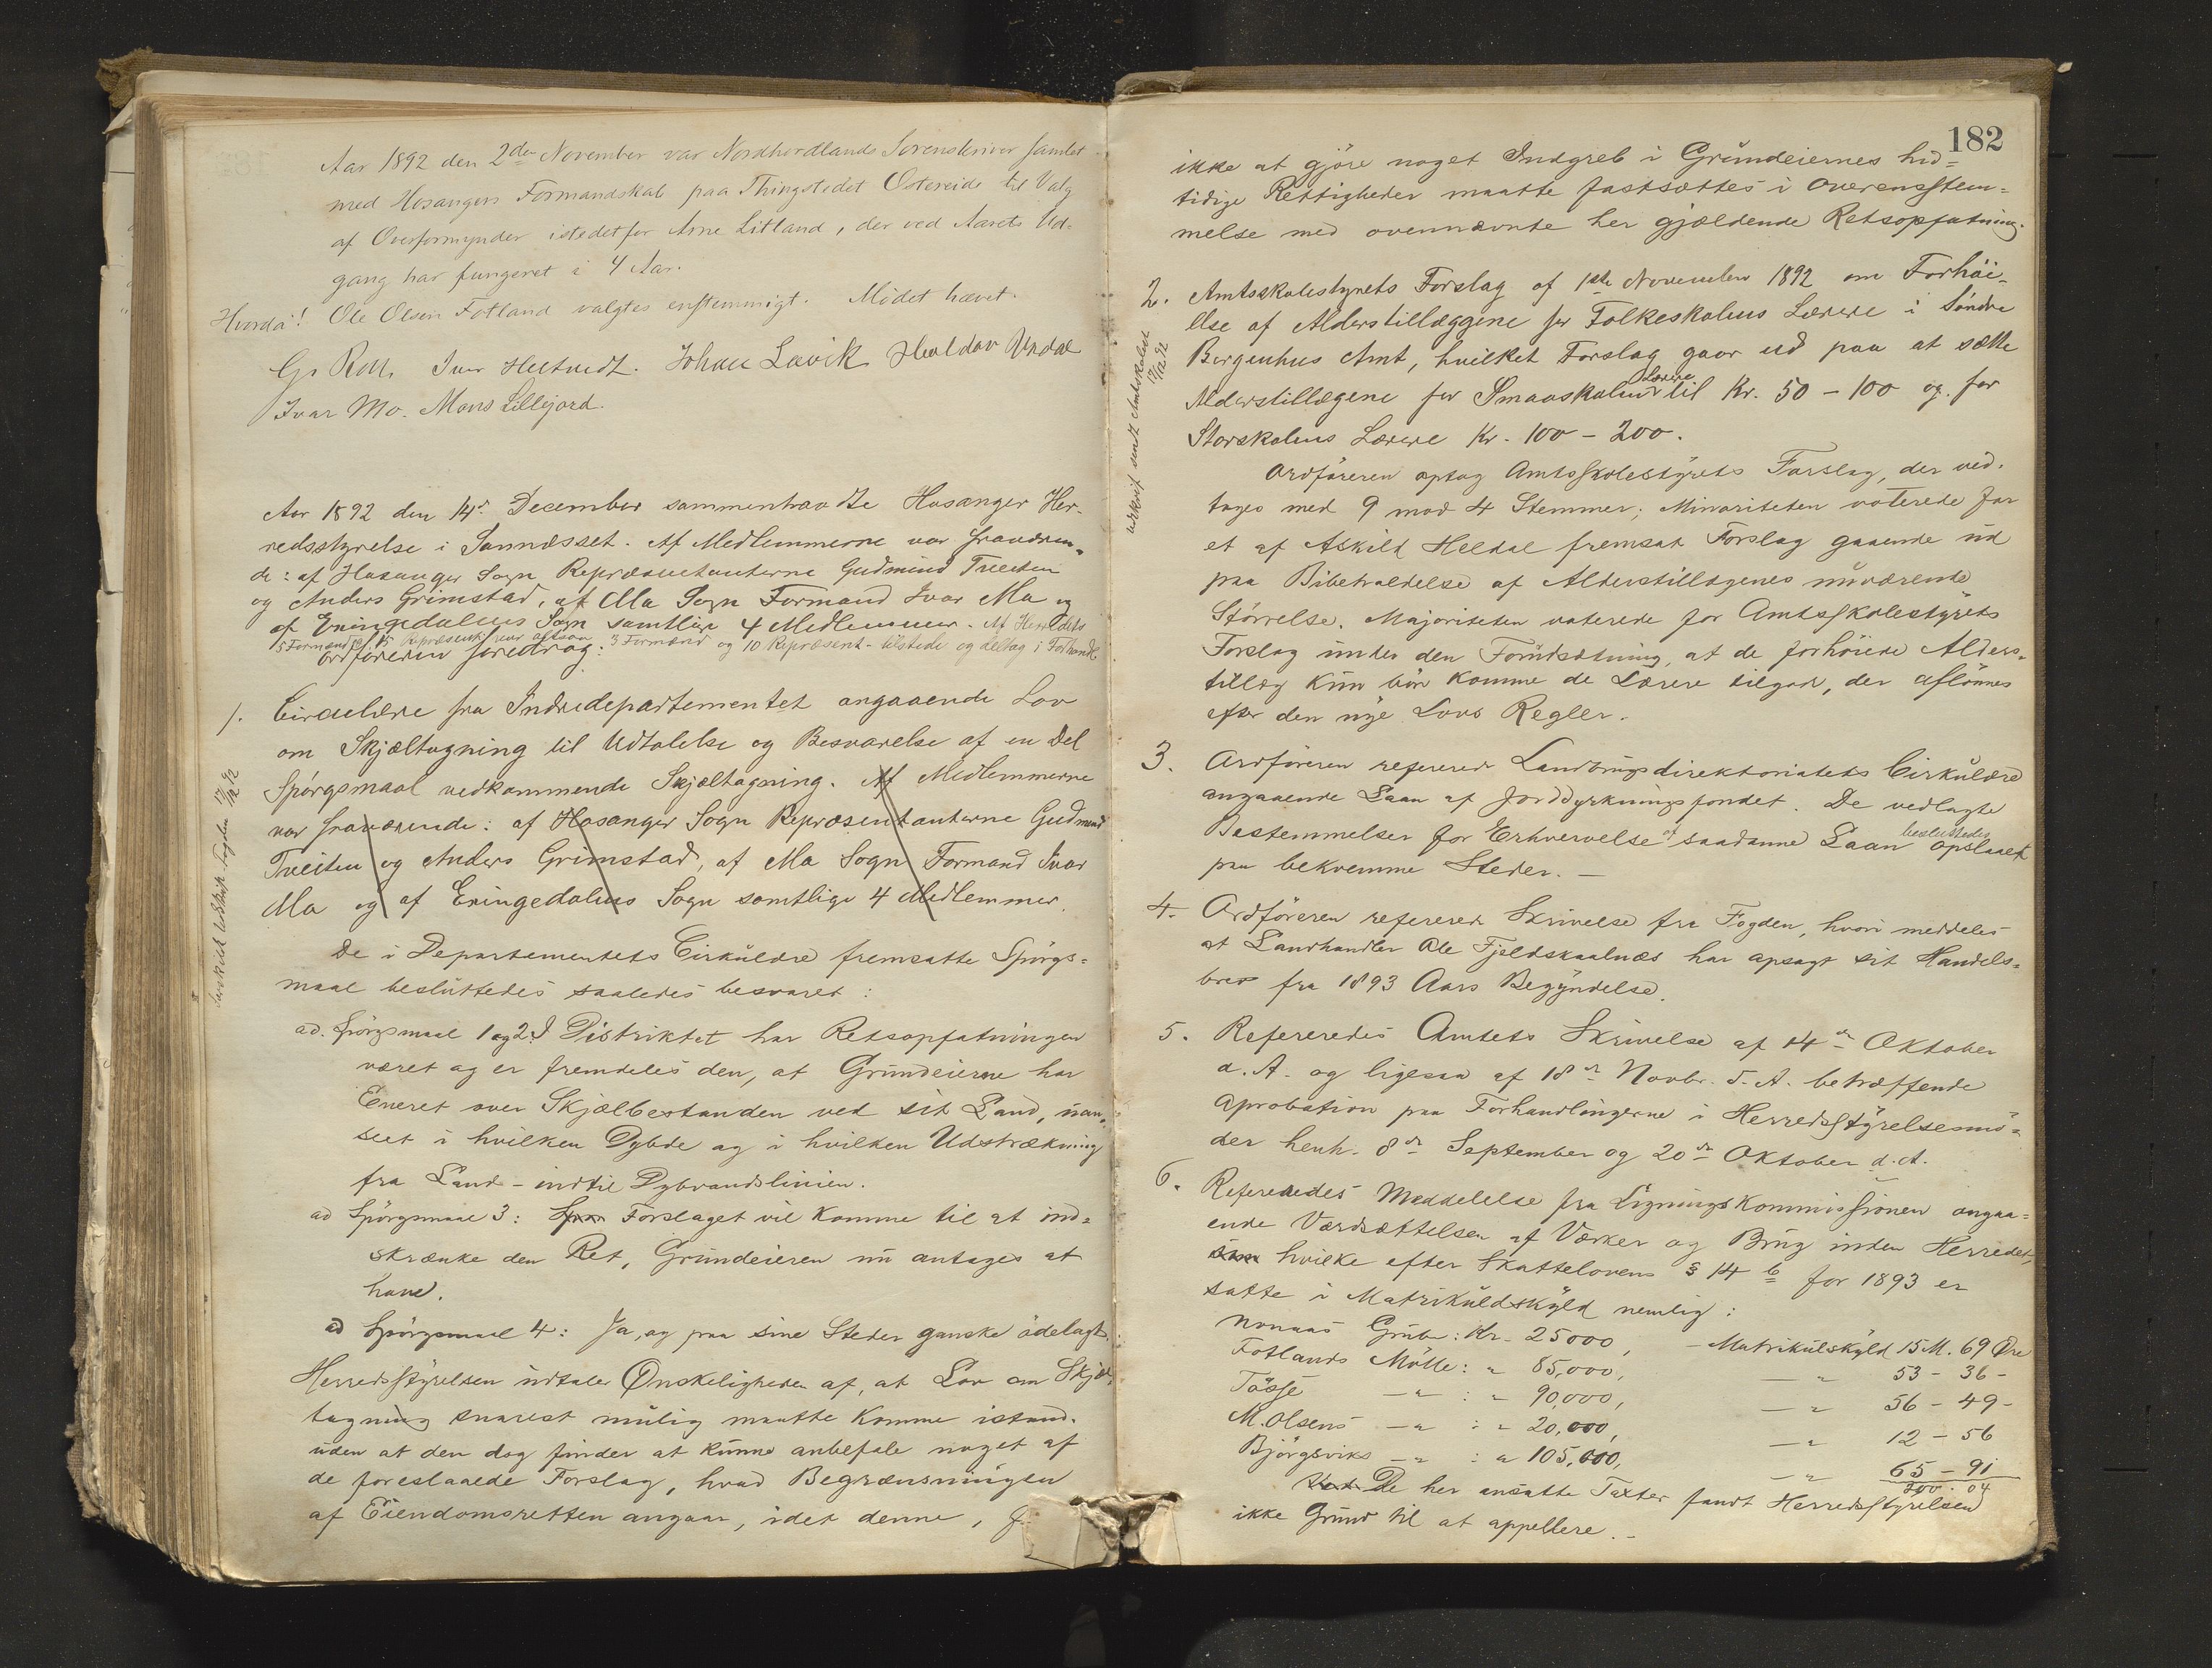 Aar 1892 den 2den November var Nordhordlands Sorenskriver samlet
med Hosangers Formandskab paa Thingstedet Ostereide til Valg
af Overformynder istedetfor Arne Litland, der ved Aarets Ud-
gang har fungeret i 4 Aar.
Hvorda! Ole Olsen Fotland valgtes enstemmigt. Mødet hævet.
Johan Lavik Haldor Undal
Ivar Mo. Mons Lillejord.
Aar 1892 den 14de December sammentraadte Hosanger Her-
redsstyrelse i Sannæsset. Af Medlemmerne var fraværen-
de: af Hosanger Sogn Repræsentanterne Gudmund Tveiten
og Anders Grimstad, af Mo Sogn Formand Ivar Mo og
af Eningedalens Sogn samtlige 4 Medlemmer. Af Herredets
5 Formænd og 15 Repræsent. var altsaa 3 Formænd og 10 Repræsent. tilstede og deltog i Forhandl.
Ordføreren foredrog:
1. Circulære fra Indredepartementet angaaende Lov
om Skjæltagning til Udtalelse og Besvarelse af en Del
Spørgsmaal vedkommende Skjæltagning. Af Medlemmerne
var fraværende: af Hosanger Sogn Repræsentanterne Gudmund
Tveiten og Anders Grimstad, af Mo Sogn Formand Ivar
Mo og af Eningedalens Sogn samtlige 4 Medlemmer.
Særskilt Udskrift Fogden 17/12 92
De i Departementets Cirkulære fremsatte Spørgs-
maal besluttedes saaledes besvaret:
ad. Spørgsmaal 1 og 2. I Distriktet har Retsopfatningen
været og er fremdeles den, at Grundeierne har
Eneret over Skjælbestanden ved sit Land, uan-
seet i hvilken Dybde og i hvilken Udstrækning
fra Land - indtil Dybvandslinien.
ad Spørgsmaal 3: Forslaget vil komme til at ind-
skrænke den Ret, Grundeieren nu antages at
have.
ad Spørgsmaal 4: Ja, og paa sine Steder ganske ødelagt.
Herredsstyrelsen udtaler Ønskeligheden af, at Lov om Skjæl-
tagning snarest mulig maatte komme istand.
uden at den dog finder at kunne anbefale noget af
de foreslaaede Forslag, hvad Begrænsningen
af Eiendomsretten angaar, idet denne,
182
ikke at gjøre noget Indgreb i Grundeiernes hid-
tidige Rettigheder maatte fastsættes i Overensstem-
melse med ovennævnte her gjældende Retsopfatning.
2. Amtsskolestyrets Forslag af 1ste November 1892 om Forhøi-
else af Alderstillæggene for Folkeskolens Lærere i Søndre
Bergenhus Amt, hvilket Forslag gaar ud paa at sætte
Alderstillægene for Smaaskolens Lærere til Kr. 50 - 100 og for
Storskolens Lærere Kr. 100 - 200.
Udskrift sendt Amtskolest. 17/12 92
Ordføreren optog Amtsskolestyrets Forslag, der ved-
toges med 9 mod 4 Stemmer; Minoriteten voterede for
et af Askild Heldal fremsat Forslag gaaende ud
paa Bibeholdelse af Alderstillægenes nuværende
Størrelse. Majoriteten voterede for Amtsskolestyrets
Forslag under den Forudsætning, at de forhøiede Alders-
tillæg kun bør komme de Lærere tilgode, der aflønnes
efter den nye Lovs Regler.
3. Ordføreren refererede Landbrugsdirektoriatets Cirkulære
angaaende Laan af Jorddyrkningsfondet. De vedlagte
Bestemmelser for Erhvervelse af saadanne Laan besluttedes opslaaet
paa bekvemme Steder. —
4. Ordføreren refererede Skrivelse fra Fogden, hvori meddeles
at Landhandler Ole Fjeldskaalnæs har opsagt sit Handels-
brev fra 1893 Aars Begyndelse.
5. Refereredes Amtets Skrivelse af 14de Oktober
d. A. og ligesaa af 18de Novbr. d. A. betræffende
Aprobation paa Forhandlingerne i Herredsstyrelsesmø-
der henh. 8de September og 20de Oktober d. A.
6. Refereredes Meddelelse fra Ligningskommissionen angaa-
ende Værdsættelsen af Værker og Brug inden Herredet,
hvilke efter Skattelovens § 14 b for 1893 er
satte i Matrikulskyld nemlig:
Nonaas Grube: Kr. 25000, - Matrikulskyld 15 M. 69 Øre
Fotlands Mølle: " 85,000, — " 53 - 36 -
Tøsse — " : " 90,000, — " 56 - 49 -
M. Olsens — " : " 20,000, — " 12 - 56
Bjørgsviks — " : " 105,000, — " 65 - 91
200. 04
De her ansatte Taxter fandt Herredsstyrelsen
ikke Grund til at appellere. -